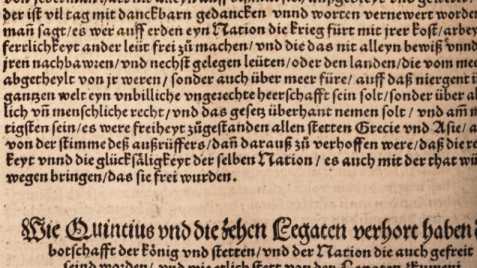 der ist vil tag mit danckbarn gedancken vnnd worten vernewert worden
man sagt/es wer auff erden eyn Nation die krieg fürt mit jrer kost/arbey
ferrlichkeyt ander leüt frei zů machen/vnd die das nit alleyn bewiß vnnd
jren nachbawren/vnd nechst gelegen leüten/oder den landen/die vom mee
abgetheylt von jr weren/sonder auch über meer füre/auff daß niergent i
gantzen welt eyn vnbilliche vngerechte heerschafft sein solt/sonder über al
lich vñ menschliche recht/vnd das gesetz überhant nemen solt/vnd am m
tigsten sein/es were freiheyt zůgestanden allen stetten Grecie vnd Asie/a
von der stimme deß außrüffers/dañ darauß zů verhoffen were/daß die re
keyt vnnd die glücksäligkeyt der selben Nation/es auch mit der that wü
wegen bringen/das sie frei wurden.
Wie Quintius vnd die zehen Legaten verhort haben
botschafft der könig vnd stetten/vnd der Nation die auch gefreit